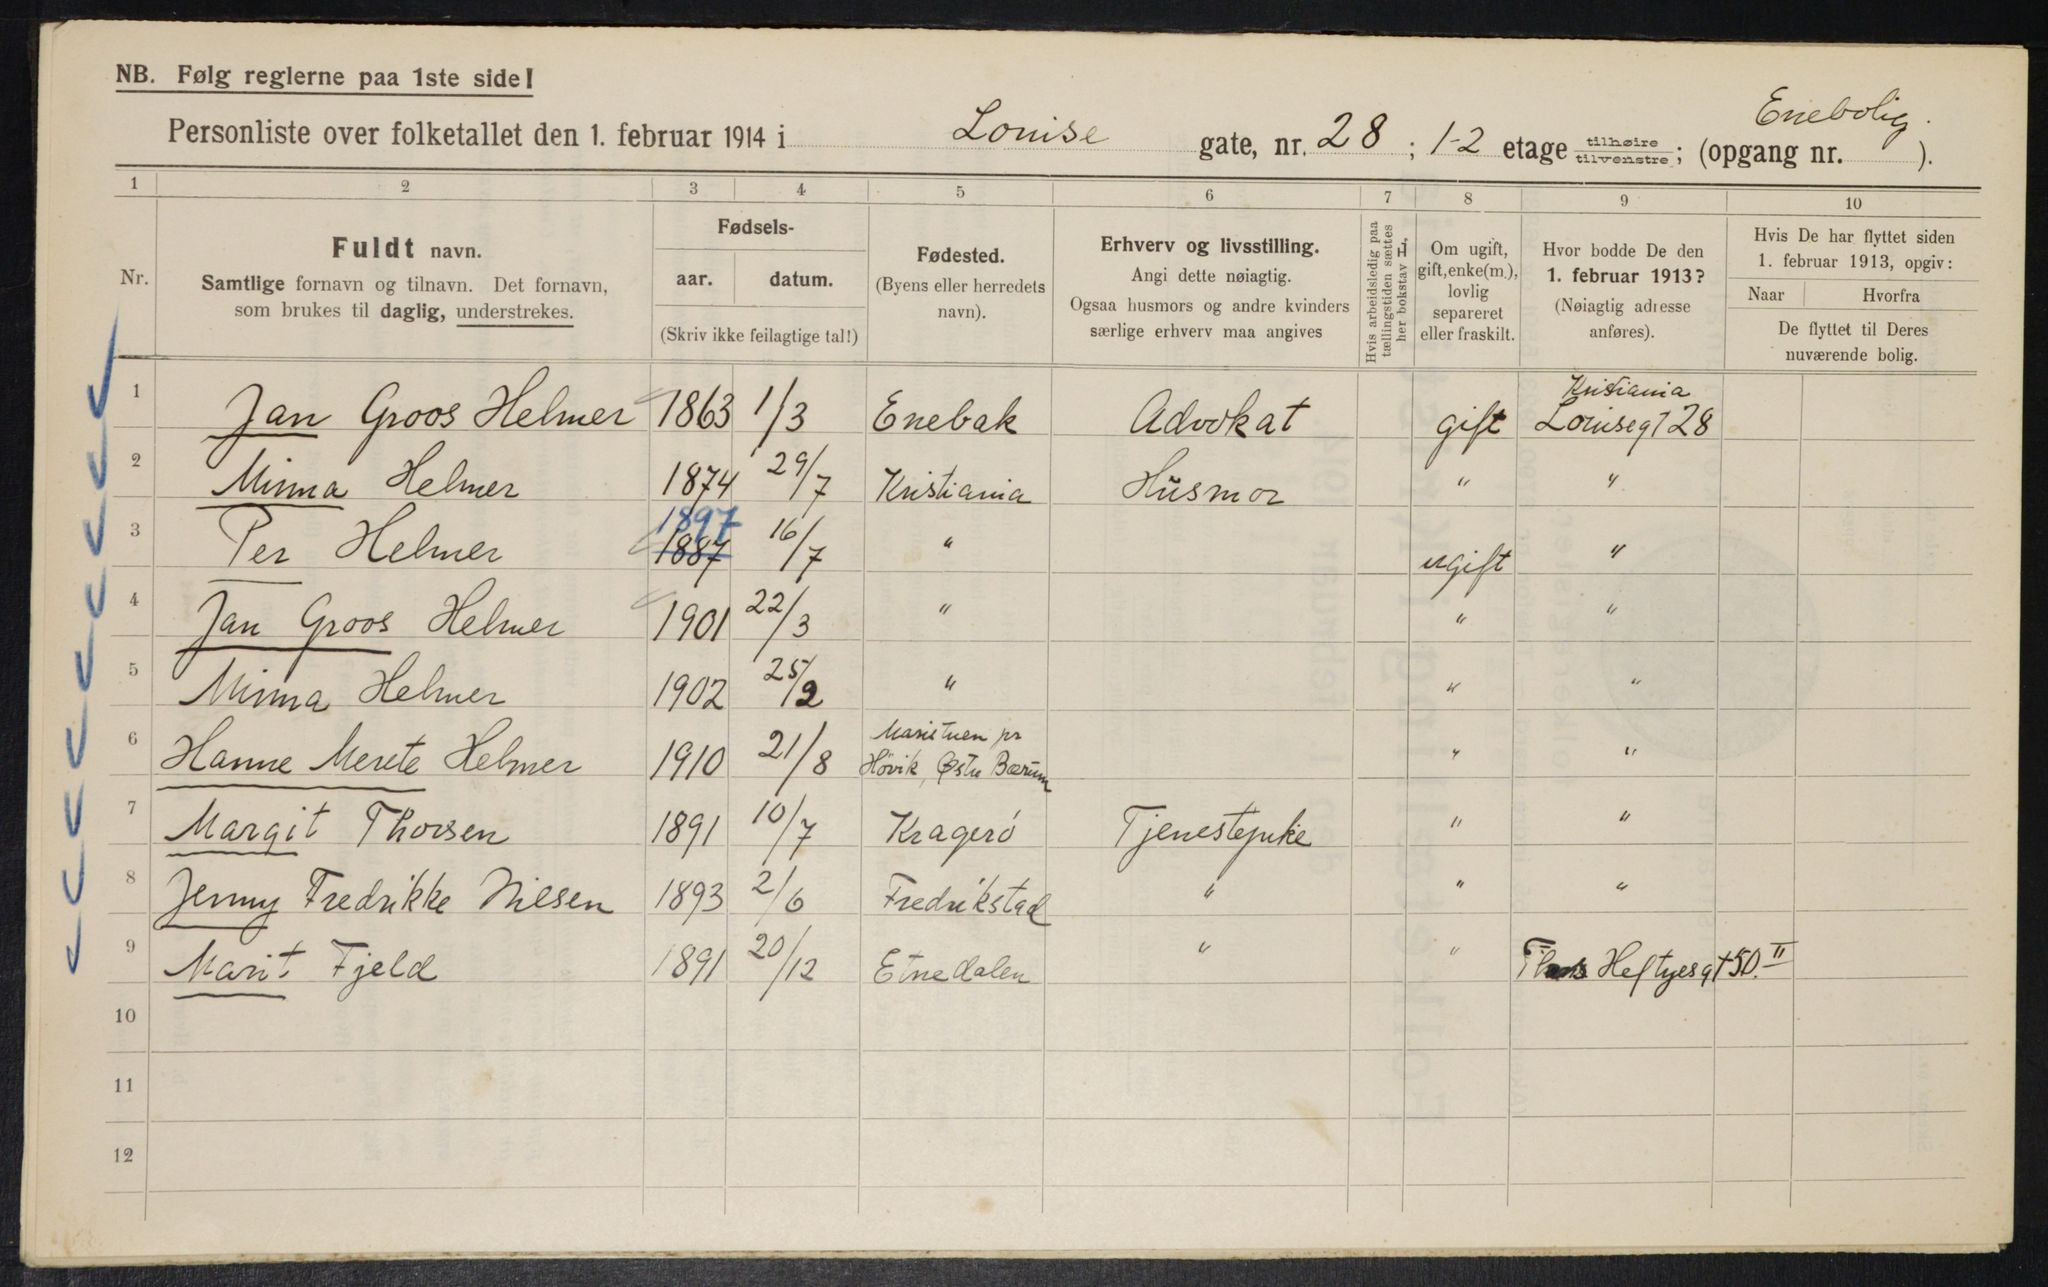 NB. Følg reglerne paa 1ste side!
Enebolig
Personliste over folketallet den 1. februar 1914 i Louise gate, nr. 28 ; 1-2 etage tilhøire tilvenstre; (opgang nr. ).
1 2 3 4 5 6 7 8 9 10
Nr.
Fuldt navn.
Samtlige fornavn og tilnavn. Det fornavn,
som brukes til daglig, understrekes.
Fødsels-
aar. datum.
(Skriv ikke feilagtige tal!)
Fødested.
(Byens eller herredets
navn).
Erhverv og livsstilling.
Angi dette nøiagtig.
Ogsaa husmors og andre kvinders
særlige erhverv maa angives
Hvis arbeidsledig paa
tællingstiden sættes
her bokstav L.
Om ugift,
gift, enke(m.),
lovlig
separeret
eller fraskilt.
Hvor bodde De den
1. februar 1913?
(Nøiagtig adresse
anføres).
Hvis De har flyttet siden
1. februar 1913, opgiv:
Naar Hvorfra
De flyttet til Deres
nuværende bolig.
Kristiania
1 Jan Groos Helmer 1863 1/3 Enebak Advokat gift Louisegt 28
2 Minna Helmer 1874 29/7 Kristiania Husmor " "
1897
3 Per Helmer 1887 16/7 " ugift "
4 Jan Groos Helmer 1901 22/3 " " "
5 Minna Helmer 1902 25/2 " " "
6 Hanne Merete Helmer 1910 21/8 Maristuen pr Høvik, Østre Bærum " "
7 Margit Thorsen 1891 10/7 Kragerö Tjenestepike " "
8 Jenny Fredrikke Nilsen 1893 2/6 Fredrikstad " " "
9 Marit Fjeld 1891 20/12 Etnedalen " " Heftyesgt 50. II
10
11
12